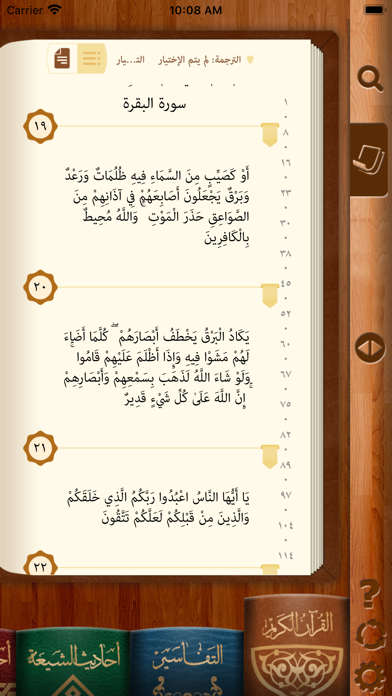 Carrier 10:08 AM
الترجمة: لم يتم الإختيار التـ...ـيار
سورة البقرة
١٩
أَوْ كَصَيِّبٍ مِنَ السَّمَاءِ فِيهِ ظُلُمَاتٌ وَرَعْدٌ
وَبَرْقٌ يَجْعَلُونَ أَصَابِعَهُمْ فِي آذَانِهِمْ مِنَ
الصَّوَاعِقِ حَذَرَ الْمَوْتِ ۚ وَاللَّهُ مُحِيطٌ
بِالْكَافِرِينَ
٢٠
يَكَادُ الْبَرْقُ يَخْطَفُ أَبْصَارَهُمْ ۖ كُلَّمَا أَضَاءَ
لَهُمْ مَشَوْا فِيهِ وَإِذَا أَظْلَمَ عَلَيْهِمْ قَامُوا ۚ
وَلَوْ شَاءَ اللَّهُ لَذَهَبَ بِسَمْعِهِمْ وَأَبْصَارِهِمْ ۚ
إِنَّ اللَّهَ عَلَىٰ كُلِّ شَيْءٍ قَدِيرٌ
٢١
يَا أَيُّهَا النَّاسُ اعْبُدُوا رَبَّكُمُ الَّذِي خَلَقَكُمْ
وَالَّذِينَ مِنْ قَبْلِكُمْ لَعَلَّكُمْ تَتَّقُونَ
٢٢
١
٨
١٦
٢٣
٣٠
٣٨
٤٥
٥٢
٦٠
٦٧
٧٥
٨٢
٨٩
٩٧
١٠٤
١١٤
?
القرآن الكريم
التفاسير
أحاديث الشيعة